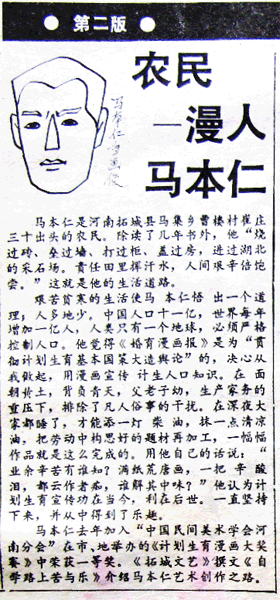 第二版
农民
—漫人
马本仁
马本仁自画像
马本仁是河南拓城县马集乡曹楼村崔庄
三十出头的农民。除读了几年书外，他“烧
过砖、垒过墙、打过柜、盖过房，进过湖北
的采石场。责任田里挥汗水，人间艰辛倍饱
尝。”这就是他的生活道路。
艰苦贫寒的生活使马 本仁悟 出一个道
理，人多地少。中国人口十一亿，世界每年
增加一亿人，人类只有一个地球，必须严格
控制人口。他觉得《婚育漫画报》是为“贯
彻计划生育基本国策大造舆论”的，决心从
我做起，用漫画宣传 计生人口知识。在 面
朝黄土，背负青天，父老子幼，生产家务的
重压下，排除了凡人俗事的干扰。在深夜大
家都睡了，才能添一灯 柴 油，抹一点清凉
油，把劳动中构思好的题材再加工，一幅幅
作品就是这么完成的。用他自己的话说：“
业余辛苦有谁知？满纸荒唐画，一把 辛 酸
泪，都云作者痴，谁解其中味？”他认为计
划生育宣传功在当今，利在后世。一直坚持
下来，并从中得到了乐趣。
马本仁去年加入“中国民间美术学会河
南分会”在市、地举办的《计划生育漫画大奖
赛》中荣获一等奖。《拓城文艺》撰文《自
学路上苦与乐》介绍马本仁艺术创作之路。